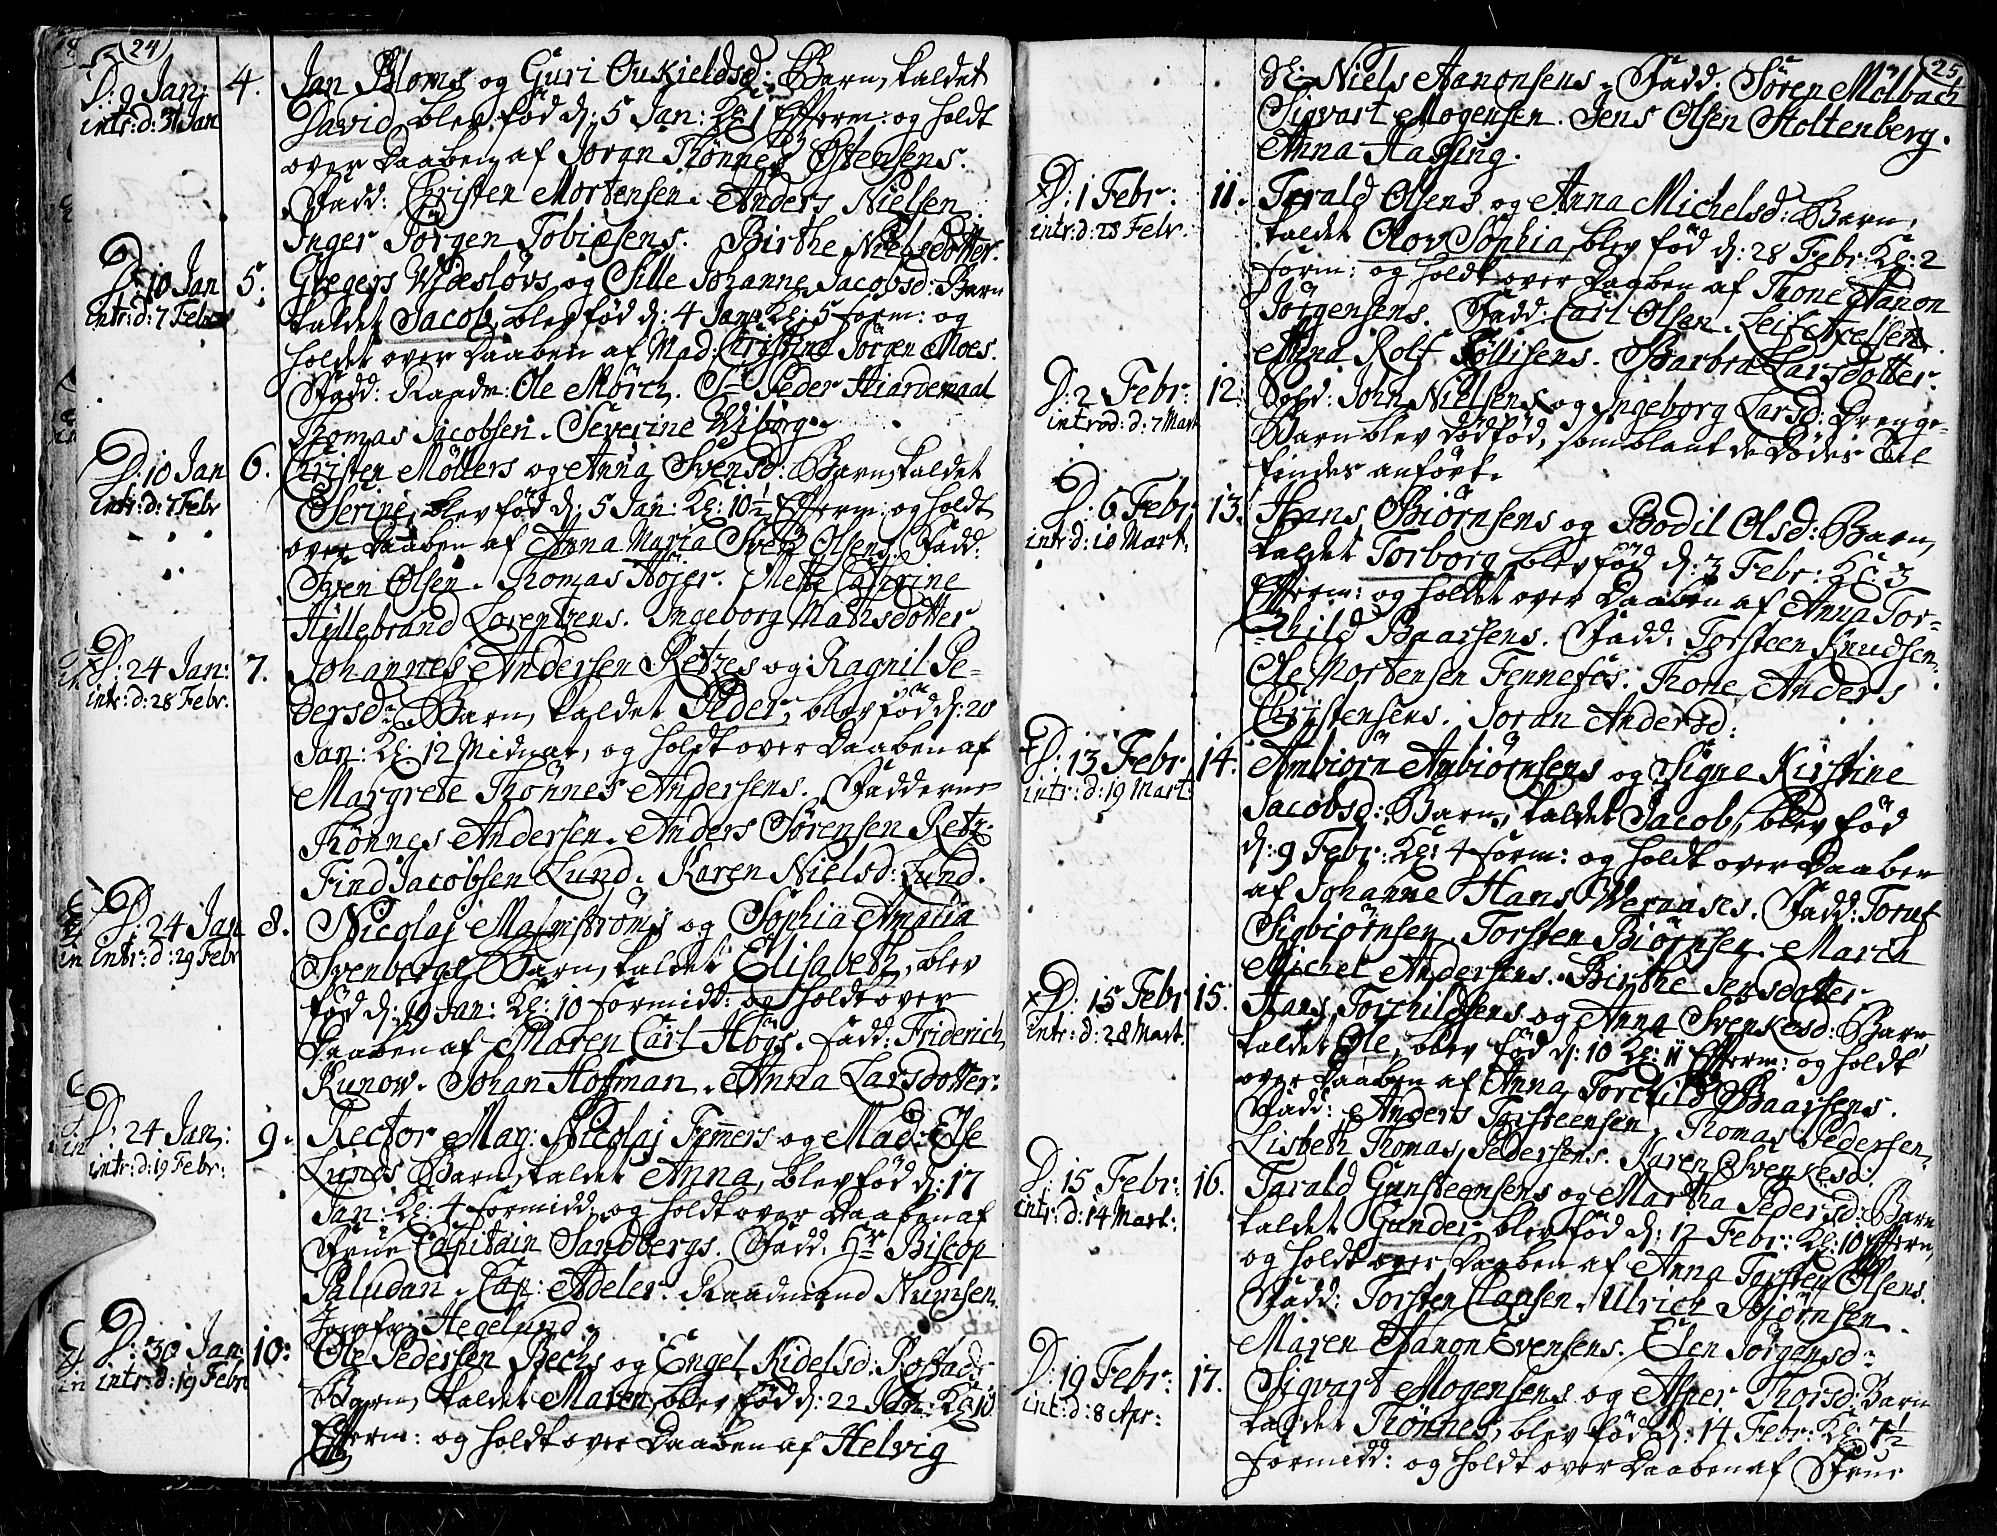 24
D: 9 Jan:
intr: d: 31 Jan
4. Jan Bloms og Guri Oukieldsd: Barn, kaldet
David, blev fød d: 5 Jan: Kl: 1 Efferm: og holdt
over Daaben af Joran Thønnes Østensens.
Fadd: Christen Mortensen. Anders Nielsen
Inger Jørgen Tobiæsens. Birthe Nielsdotter.
D: 10 Jan
intr: d: 7 Febr
5. Gregers Widesløvs og Sille Johanne Jacobsd: Barn
kaldet Jacob, blev fød d: 4 Jan: Kl: 5 form: og
holdet over Daaben af Mad: Christine Jørgen Moes.
Fadd: Raadm: Ole Mørch. Sr Peder Hiardemaal
Thomas Jacobsen. Severine Wiborg.
D: 10 Jan
intr: d: 7 Febr
6. Christen Møllers og Anna Svensd: Barn, kaldet
Serine, blev fød d: 5 Jan: Kl: 10½ Efferm: og holdt
over Daaben af Anna Maria Svend Olsens. Fadd:
Sven Olsen. Thomas Højer. Mette Cathrine
Hillebrand Lorentzens. Ingeborg Mathsdotter.
D: 24 Jan:
intr: d: 28 Febr.
7. Johannes Andersen Retzes og Ragnil Pe-
dersd: Barn, kaldet Peder, blev fød d: 20
Jan: Kl: 12 Midnat, og holdt over Daaben af
Margrete Thønnes Andersens. Fadderne
Thønnes Andersen. Anders Sørensen Retz.
Find Jacobsen Lund. Karen Nielsd: Lund.
D: 24 Jan
intr: d: 29 Febr
8. Nicolaj Malmstrøms og Sophia Amalia
Svenbergs Barn, kaldet Elisabeth, blev
fød d: 19 Jan: Kl: 10 formidd: og holdt over
Daaben af Maren Carl Høgs. Fadd: Friderich
Kunow. Johan Hoffman. Anna Larsdotter.
D: 24 Jan:
intr: d: 19 Febr:
9. Rector Mag: Nicolaj Femmers og Mad: Else
Lunds Barn, kaldet Anna, blev fød d: 17
Jan: Kl: 4 formidd: og holdt over Daaben af
Frue Capitain Sandbergs. Fadd: Hr Biscop
Paludan. Cap: Adeler. Raadmand Numsen.
Jomfru Hegelund.
D: 30 Jan:
intr: d: 19 Febr
10: Ole Pedersen Bechs og Engel Kidelsd: Rostads
Barn, kaldet Maren, blev fød d: 22 Jan: Kl: 10
Efferm: og holdt over Daaben af Helvig
25
Sl: Niels Aanonsens. Fadd: Søren Mølbach
Sigvart Mogensen. Jens Olsen Stoltenberg.
Anna Hassing.
D: 1 Febr:
intr: d: 28 Febr.
11. Tarald Olsens og Anna Michelsd: Barn,
kaldet Olov Sophia, blev fød d: 28 Febr: Kl: 2
form: og holdt over Daaben af Thone Aanon
Jørgensens. Fadd: Carl Olsen. Leif Axelsen.
Anna Rolf Tøllisens. Barbra Larsdotter.
D: 2 Febr:
introd: d: 7 Mart
12. Sold: John Nielsens og Ingeborg Larsd: Drenge-
Barn blev dødfød, som blant de Døde
findes anført.
D: 6 Febr:
intr: d: 10 Mart:
13. Hans Biørnsens og Bodil Olsd: Barn,
kaldet Torborg, blev fød d: 3 Febr: Kl: 3
Efferm: og holdet over Daaben af Anna Tor-
child Baarsens. Fadd: Torsteen Knudsen.
Ole Mortensen Fennefos. Thone Anders
Christensens. Joran Andersd:
D: 13 Febr
intr: d: 19 Mart:
14. Ambiørn Anbiørnsens og Signe Kirstine
Jacobsd: Barn, kaldet Jacob, blev fød
d: 9 Febr: Kl: 4 form: og holdt over Daaben
af Johanne Hans Wernases. Fadd: Toruf
Sigbiørnsen. Torsten Biørnsen. Maria
Michel Andersens. Birthe Jensdotter
D: 15 Febr
intr: d: 28 Mart.
15. Hans Torchildsens og Anna Svenkesd: Barn
kaldet Ole, blev fød d: 10 Kl: 11 Efferm: og holdt
over Daaben af Anna Torchild Baarsens.
Fadd: Anders Torsteensen, Thomas Pedersen.
Lisbeth Thomas Pedersens. Karen Svenkesd:
D: 15 Febr:
intr: d: 14 Mart:
16. Tarald Gunsteensens og Martha Pedersd: Barn
kaldet Gunder, blev fød d: 12 Febr: Kl: 10 Efferm,
og holdt over Daaben af Anna Torsten Olsens.
Fadd: Torsten Clausen. Ulrich Biørnsen.
Maren Aanon Evensens. Elen Jørgensd:
D: 19 Febr:
int: d: 8 Apr:
17. Sigvart Mogensens og Asper Thorsd: Barn
kaldet Thønnes, blev fød d: 14 Febr: Kl: 7½
formidd: og holdt over Daaben af Frue